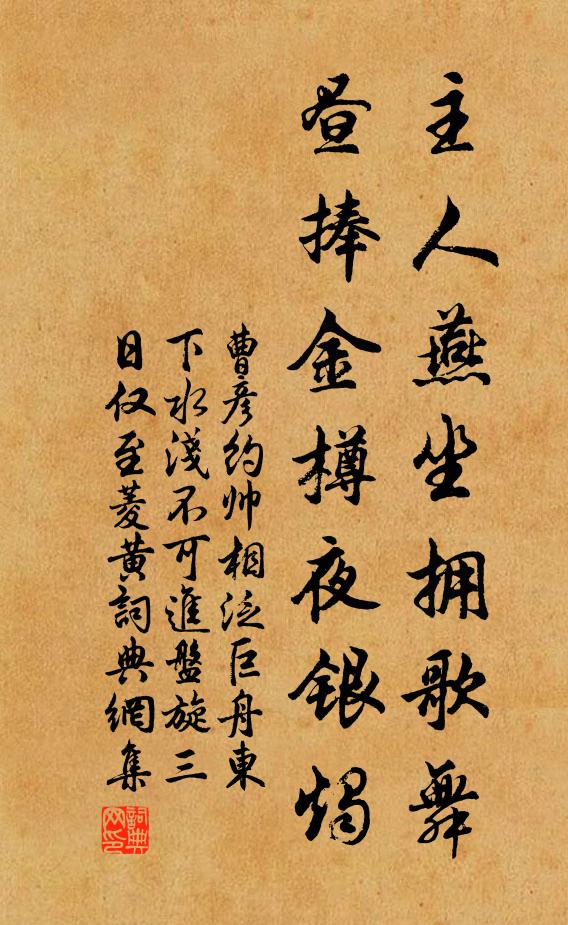 主人燕坐拥歌舞
昼捧金樽夜银烛
曹彦约帅相泛巨舟東
下水淺不可進盤旋三
日仅至菱黄詞典網集
詞典网印